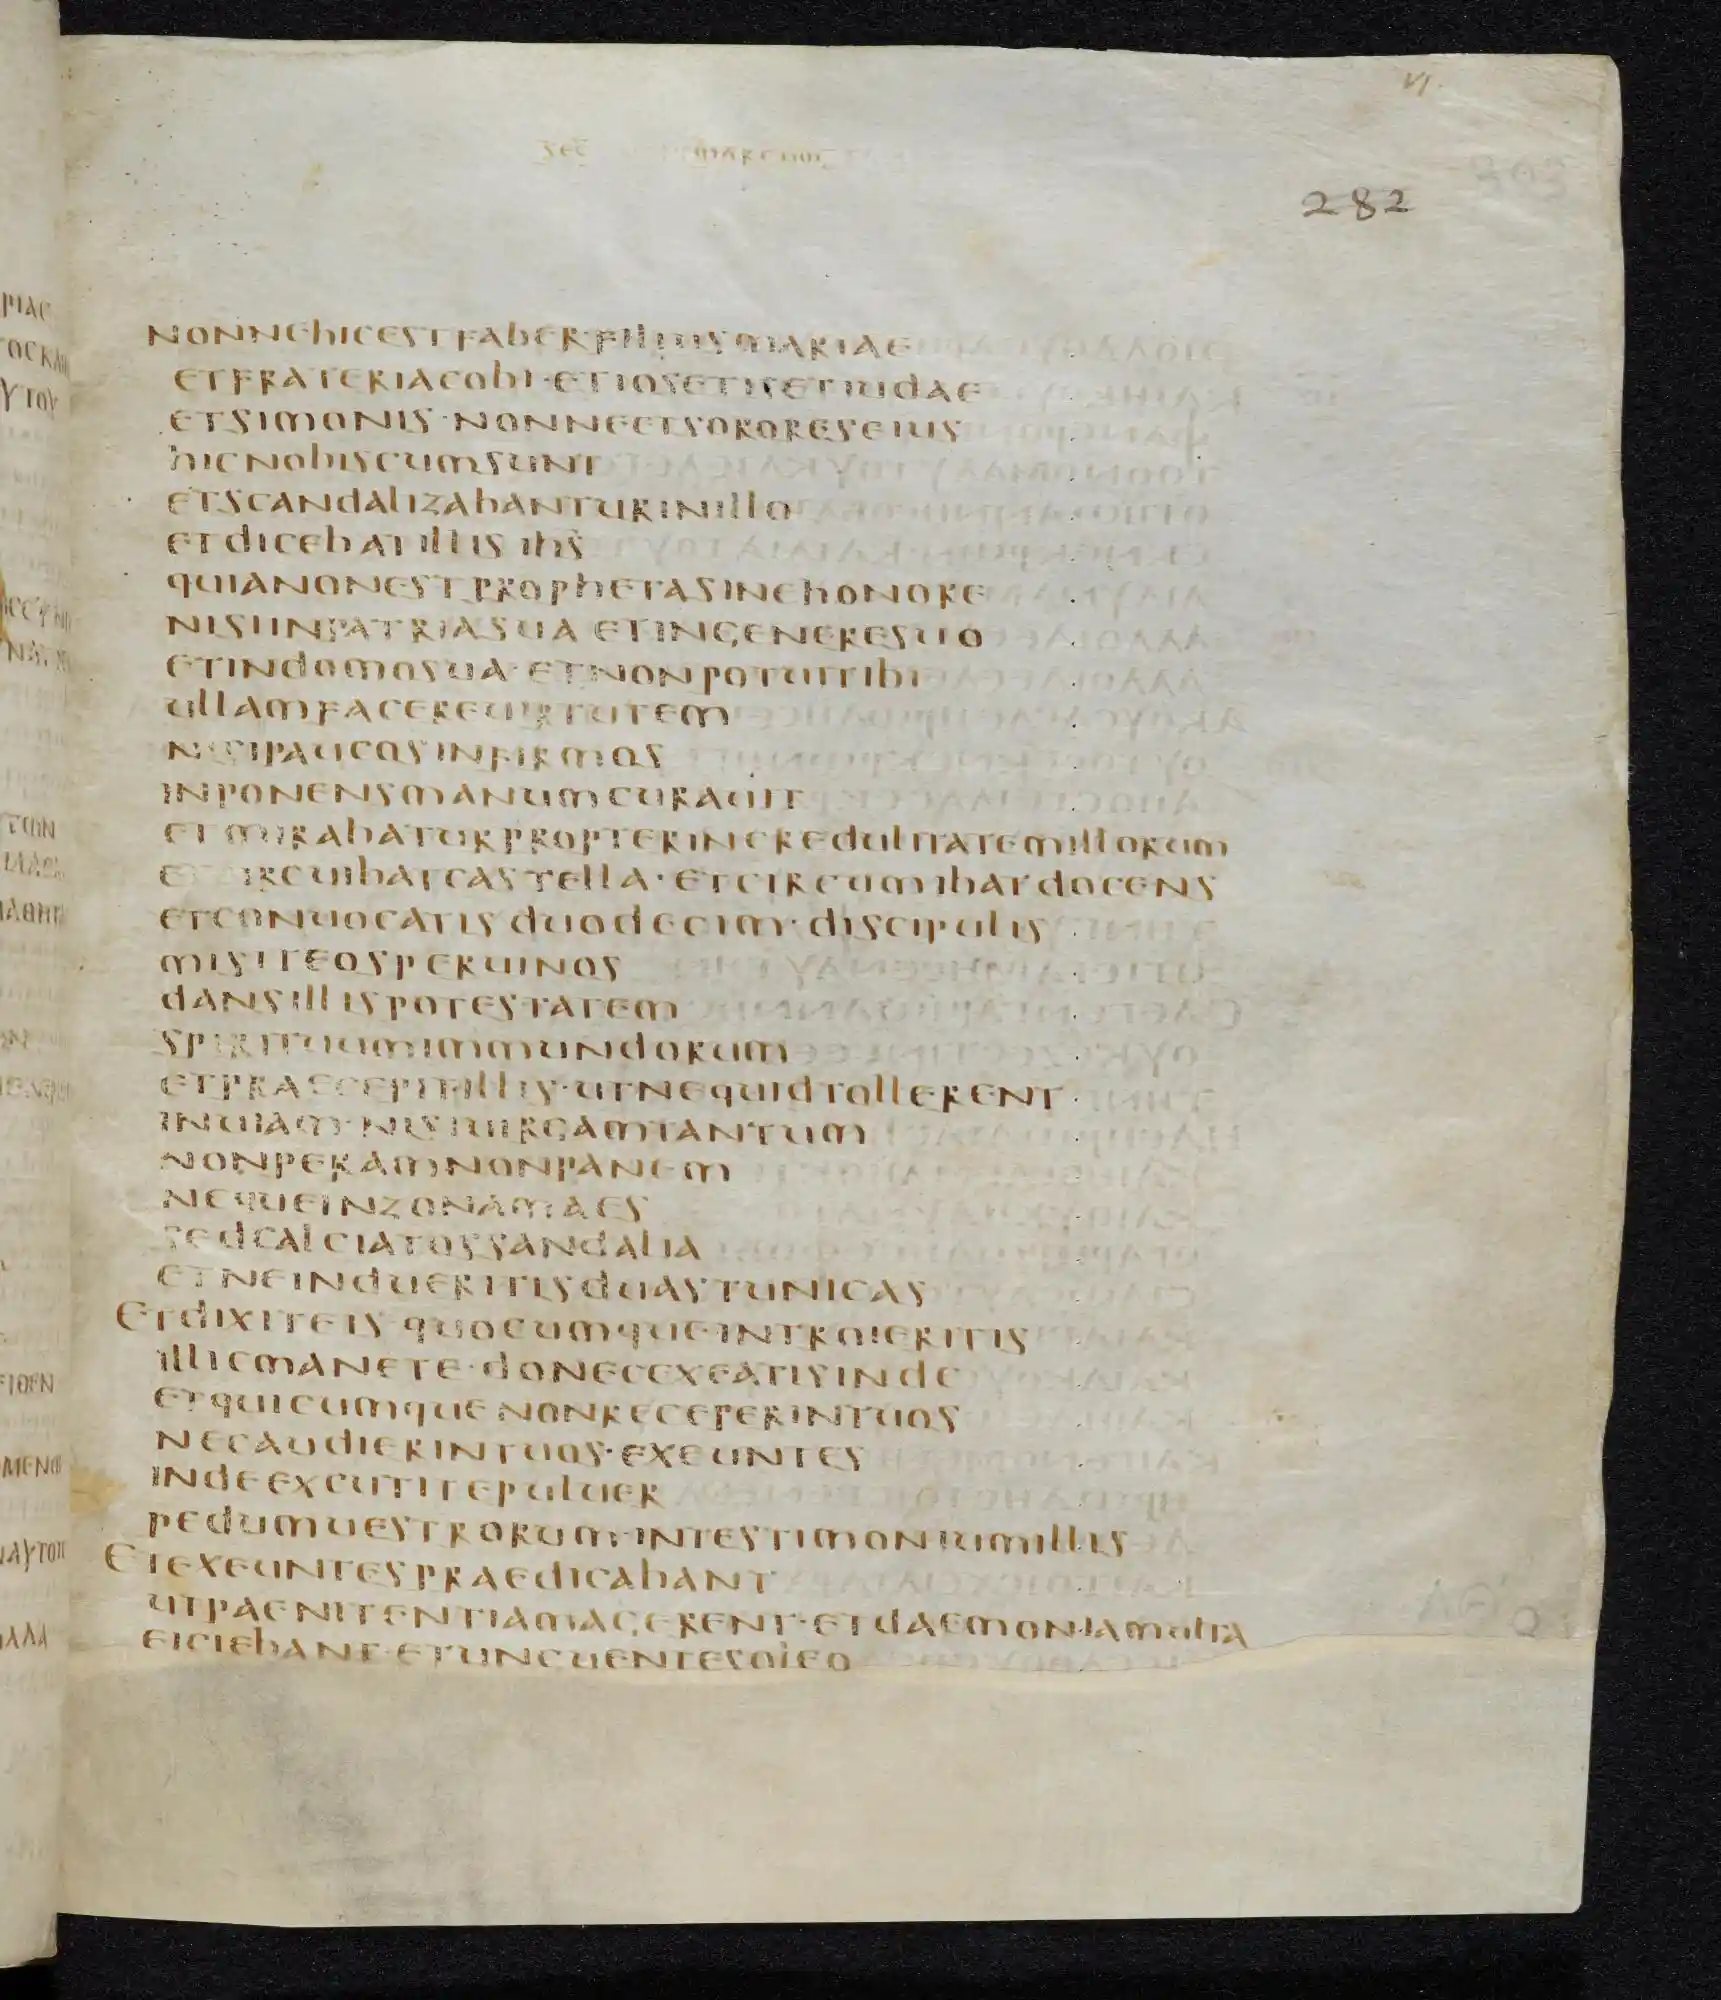 VI
SEC MARCUM
282
NONNEHICESTFABER·FILIUSMARIAE
ETFRATERIACOBI·ETIOSETISETIUDAE
ETSIMONIS·NONNEETSORORESEIUS
HICNOBISCUMSUNT
ETSCANDALIZABANTURINILLO
ETDICEBATILLIS IHS
QUIANONESTPROPHETASINEHONORE
NISIINPATRIASUA ETINGENERESUO
ETINDOMOSUA·ETNONPOTUITIBI
ULLAMFACEREUIRTUTEM
NISIPAUCOSINFIRMOS
INPONENSMANUMCURAUIT
ETMIRABATURPROPTERINCREDULITATEMILLORUM
E IRCUIBATCASTELLA·ETCIRCUMIBATDOCENS
ETCONUOCATIS DUODECIM·DISCIPULIS
MISITEOSPERUINOS
DANSILLISPOTESTATEM
SPIRITUUMIMMUNDORUM
ETPRAECEPITILLIS·UTNEQUIDTOLLERENT
INUIAM·NISIUIRGAMTANTUM
NONPERAMNONPANEM
NEQUEINZONAMAES
SEDCALCIATOSSANDALIA
ETNEINDUERITISDUASTUNICAS
ETDIXITEIS·QUOCUMQUEINTROIERITIS
ILLICMANETE·DONECEXEATISINDE
ETQUICUMQUENONRECEPERINTUOS
NECAUDIERINTUOS·EXEUNTES
INDEEXCUTITEPULUER
PEDUMUESTRORUM·INTESTIMONIUMILLIS
ETEXEUNTESPRAEDICABANT
UTPAENITENTIAMAGERENT·ETDAEMONIAMULTA
EICIEBANT·ETUNGUENTESOLEO